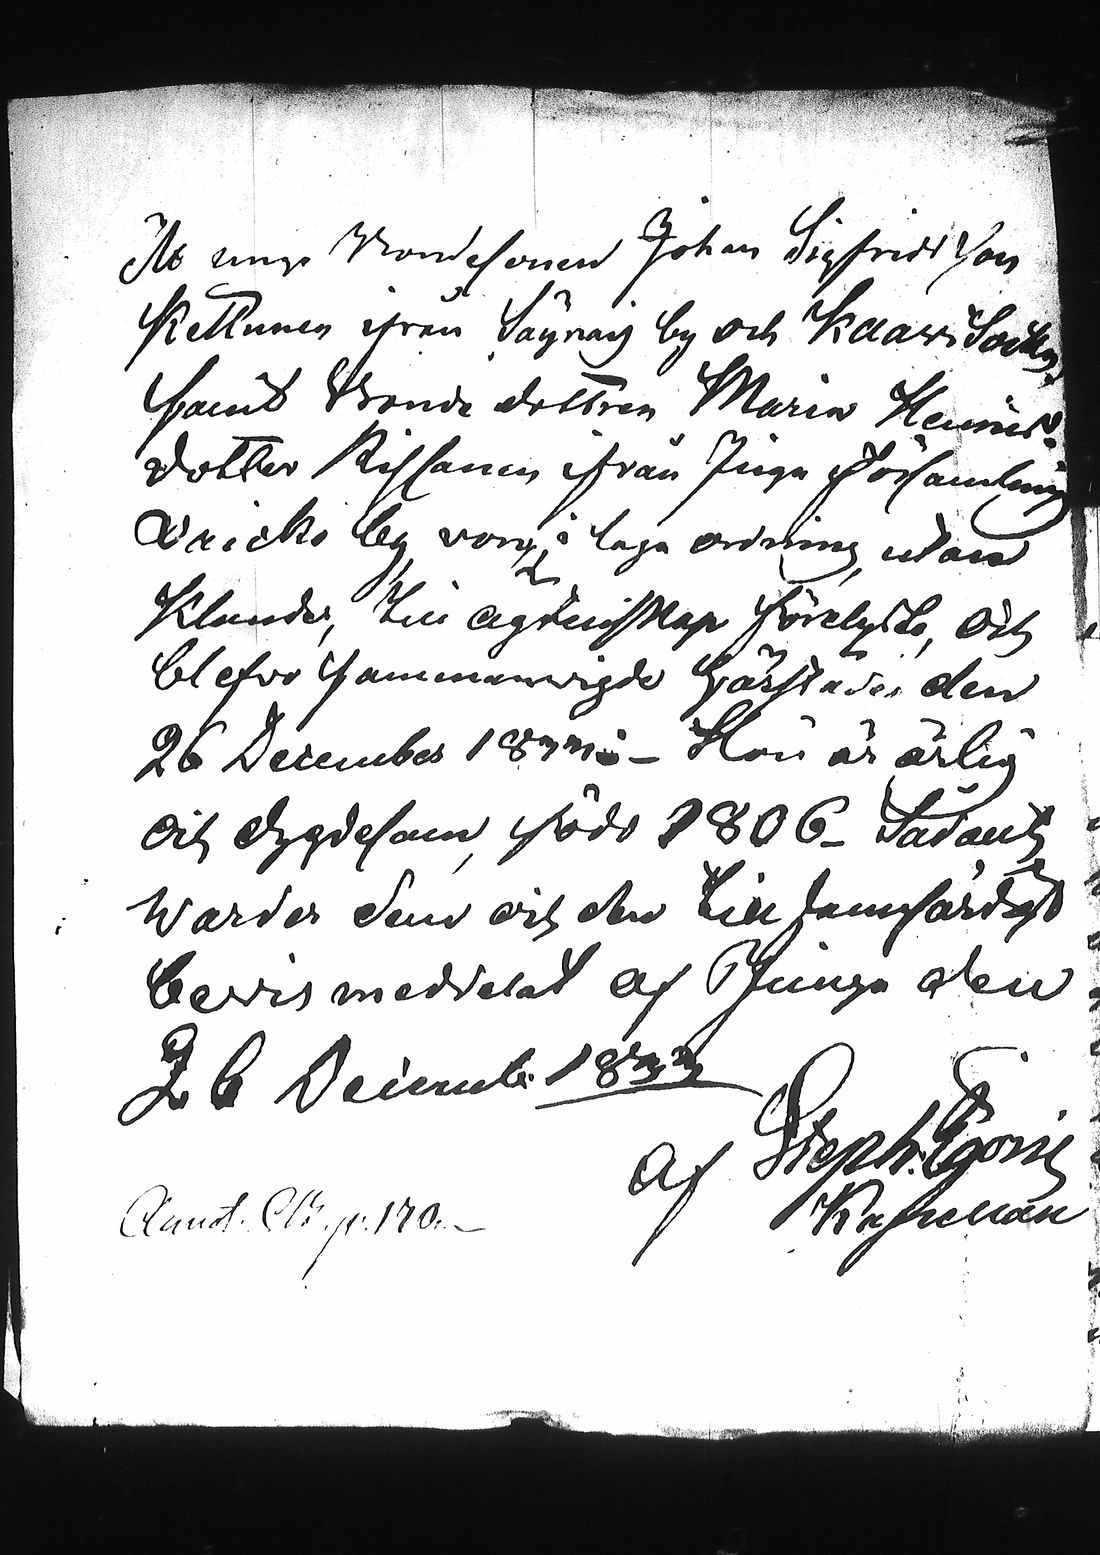 At unge Bondesonen Johan Sigfridsson
Kettunen ifrån Säynäis by och Kaavi Socken,
samt Bonde dottren Maria Henrics-
dotter Rissanen ifrån Juga församling
by, voro i laga ordning, utan
Klander, til ägtenskap förelyste, och
blefvo sammanvigde härstädes den
26 December 1833. – Hon är ärlig
och dygdesam, född 1806 – Sådant
warder dem och den till sannfärdigt
bevis meddelat af Juuga den
26 Decemb. 1833
af Steph.
Kapellan
Annot. p. 170. –